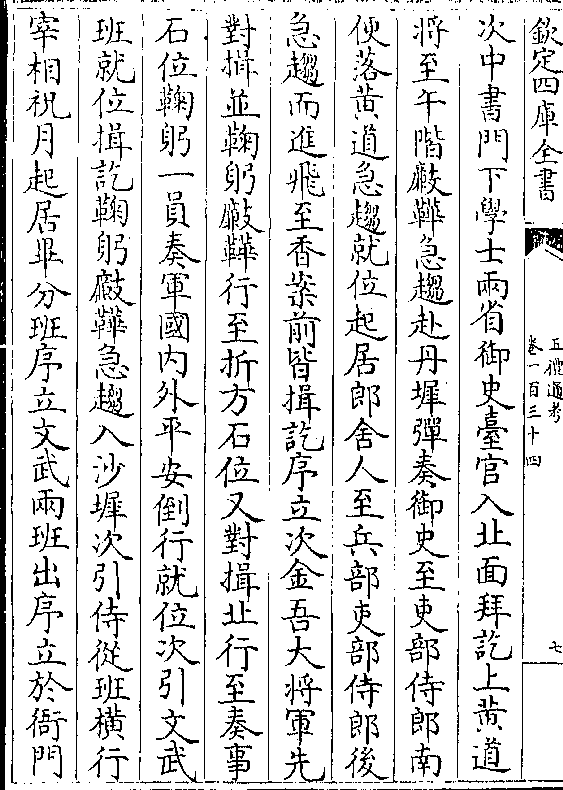 欽定四庫全書
五禮通考
卷一百三十四
七
次中書門下學士兩省御史臺官入北面拜訖上黃道
將至午階𢕄鞾急趨赴丹墀彈奏御史至吏部侍郎南
便落黃道急趨就位起居郎舍人至兵部吏部侍郎後
急趨而進飛至香案前皆揖訖序立次金吾大將軍先
對揖並鞠躬鞾行至折方石位又對揖北行至奏事
石位鞠躬一員奏軍國內外平安倒行就位次引文武
班就位揖訖鞠躬鞾急趨入沙墀次引侍從班橫行
宰相祝月起居畢分班序立文武兩班出序立於衙門